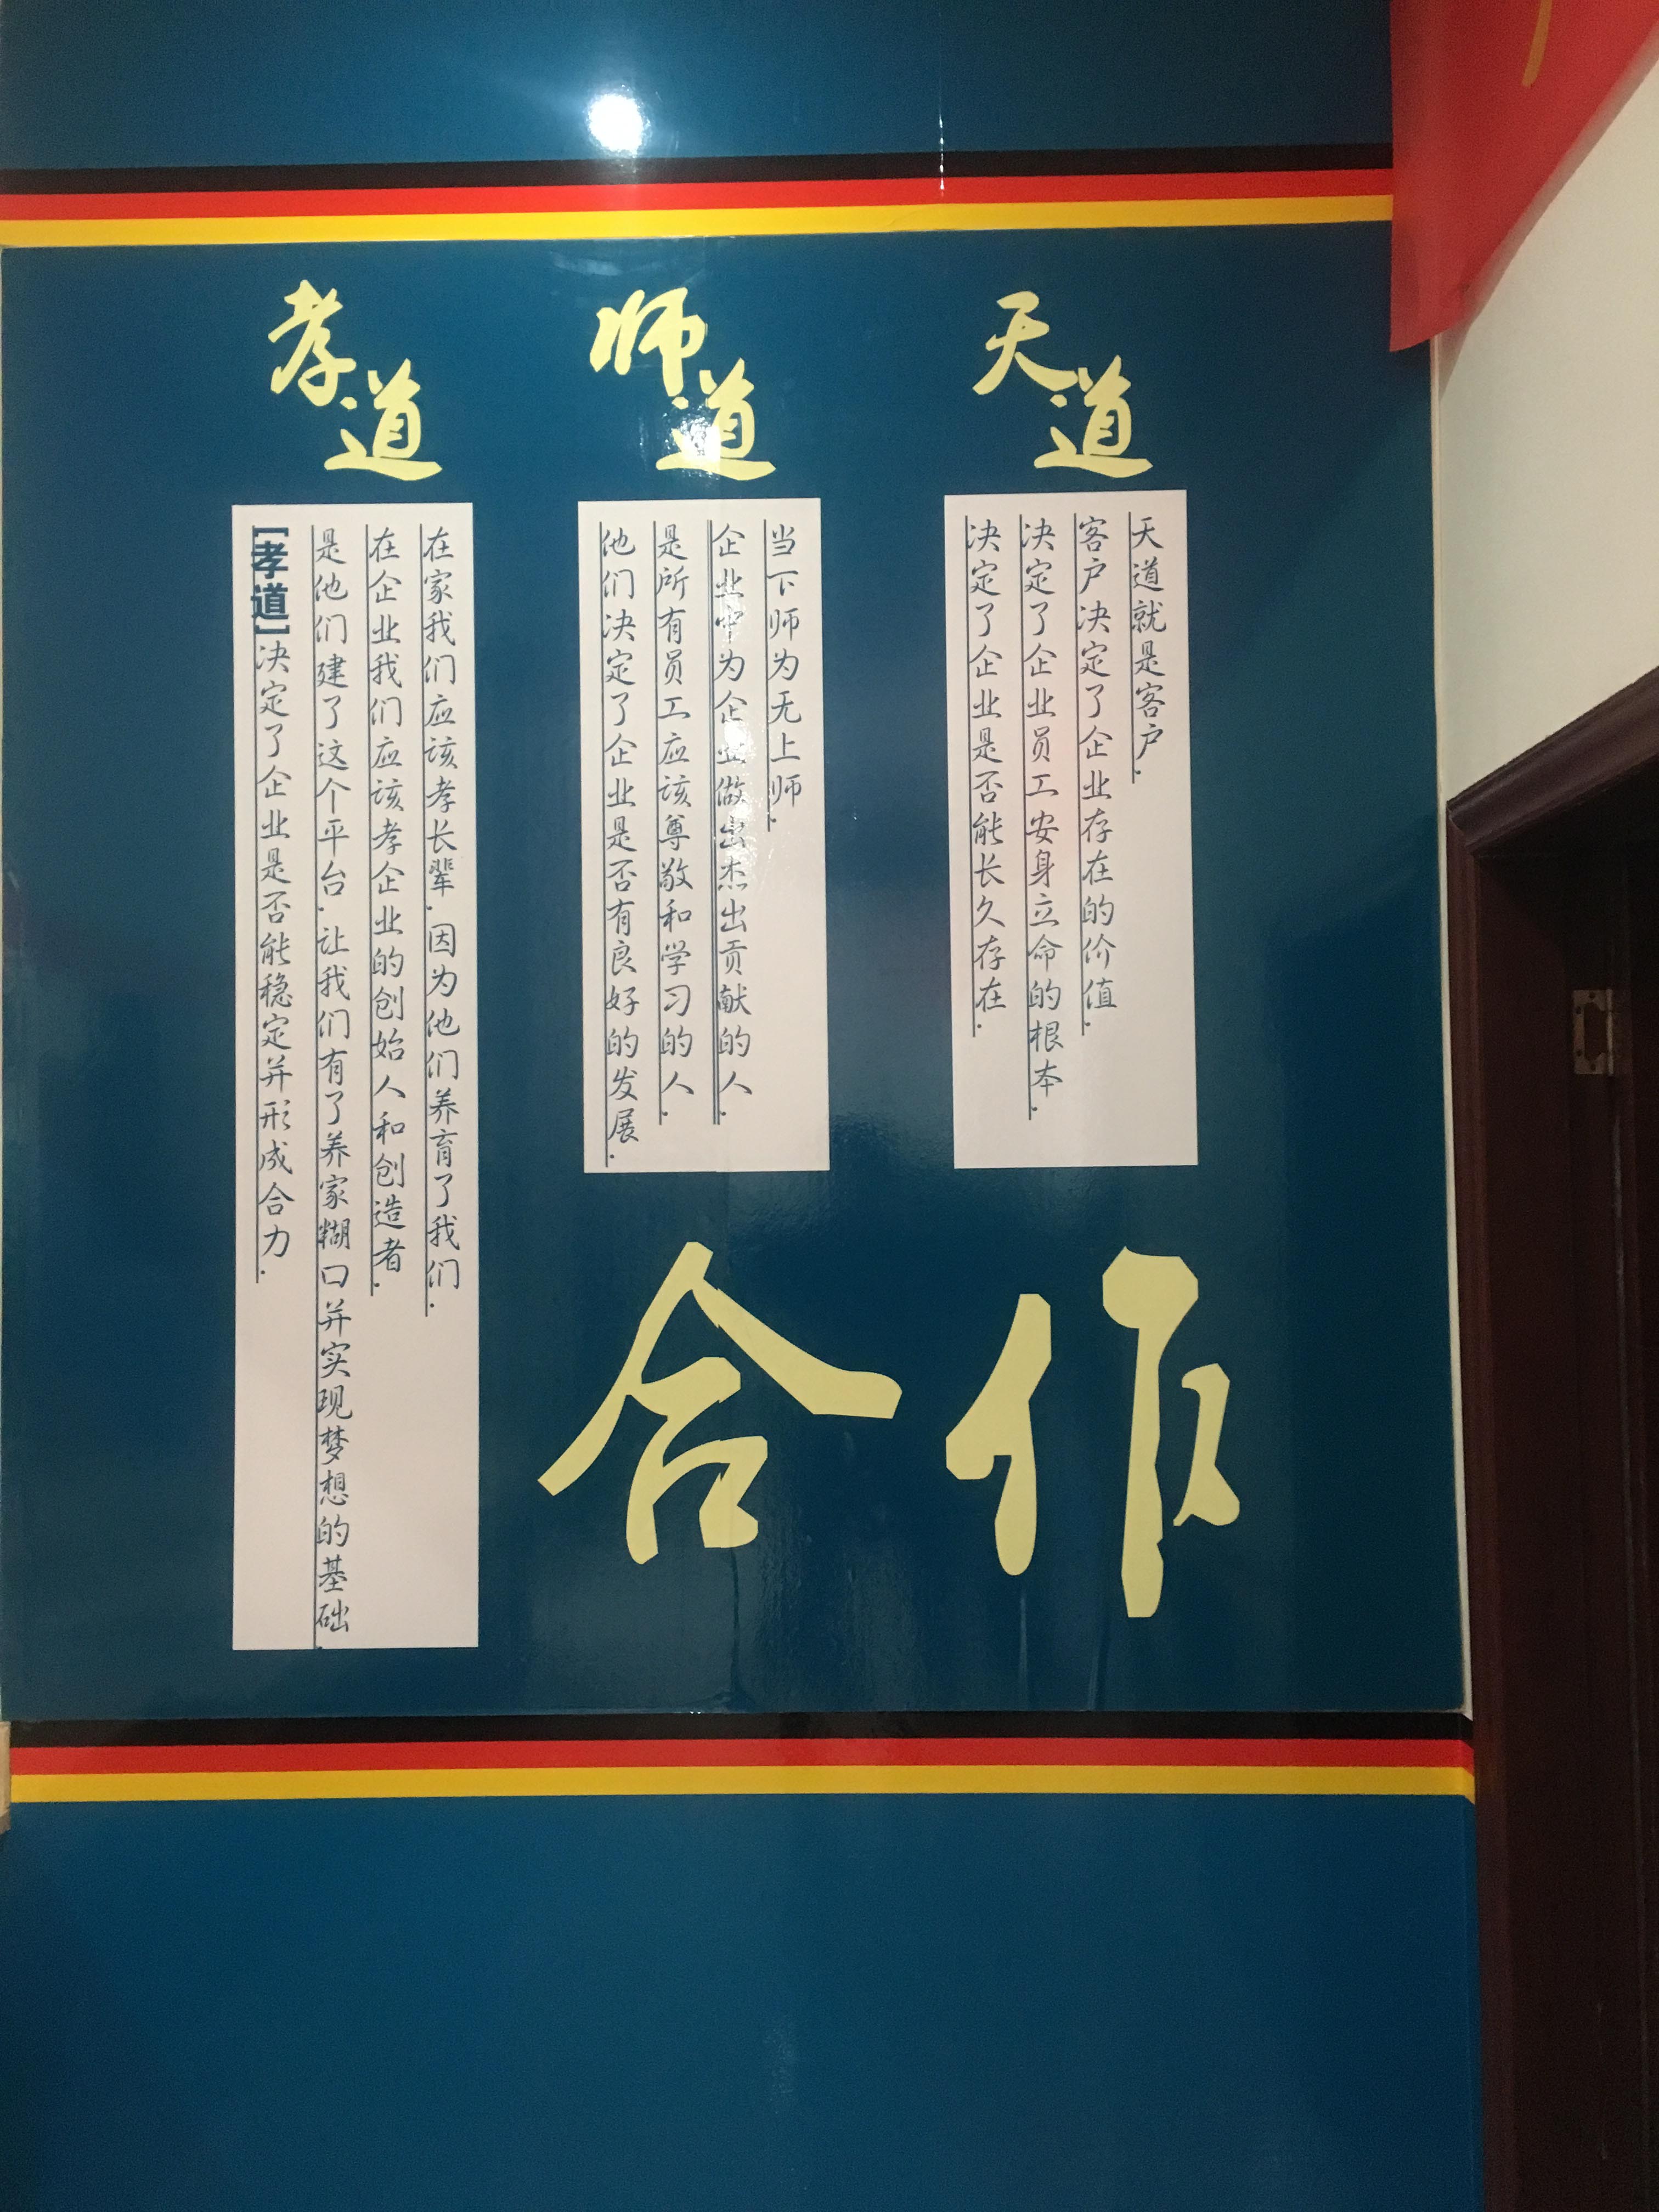 天道
天道就是客户.
客户决定了企业存在的价值.
决定了企业员工安身立命的根本.
决定了企业是否能长久存在.
师道
当下师为无上师.
企业中为企业做出杰出贡献的人.
是所有员工应该尊敬和学习的人.
他们决定了企业是否有良好的发展.
孝道
在家我们应该孝长辈.因为他们养育了我们.
在企业我们应该孝企业的创始人和创造者.
是他们建了这个平台.让我们有了养家糊口并实现梦想的基础.
[孝道]决定了企业是否能稳定并形成合力.
合作